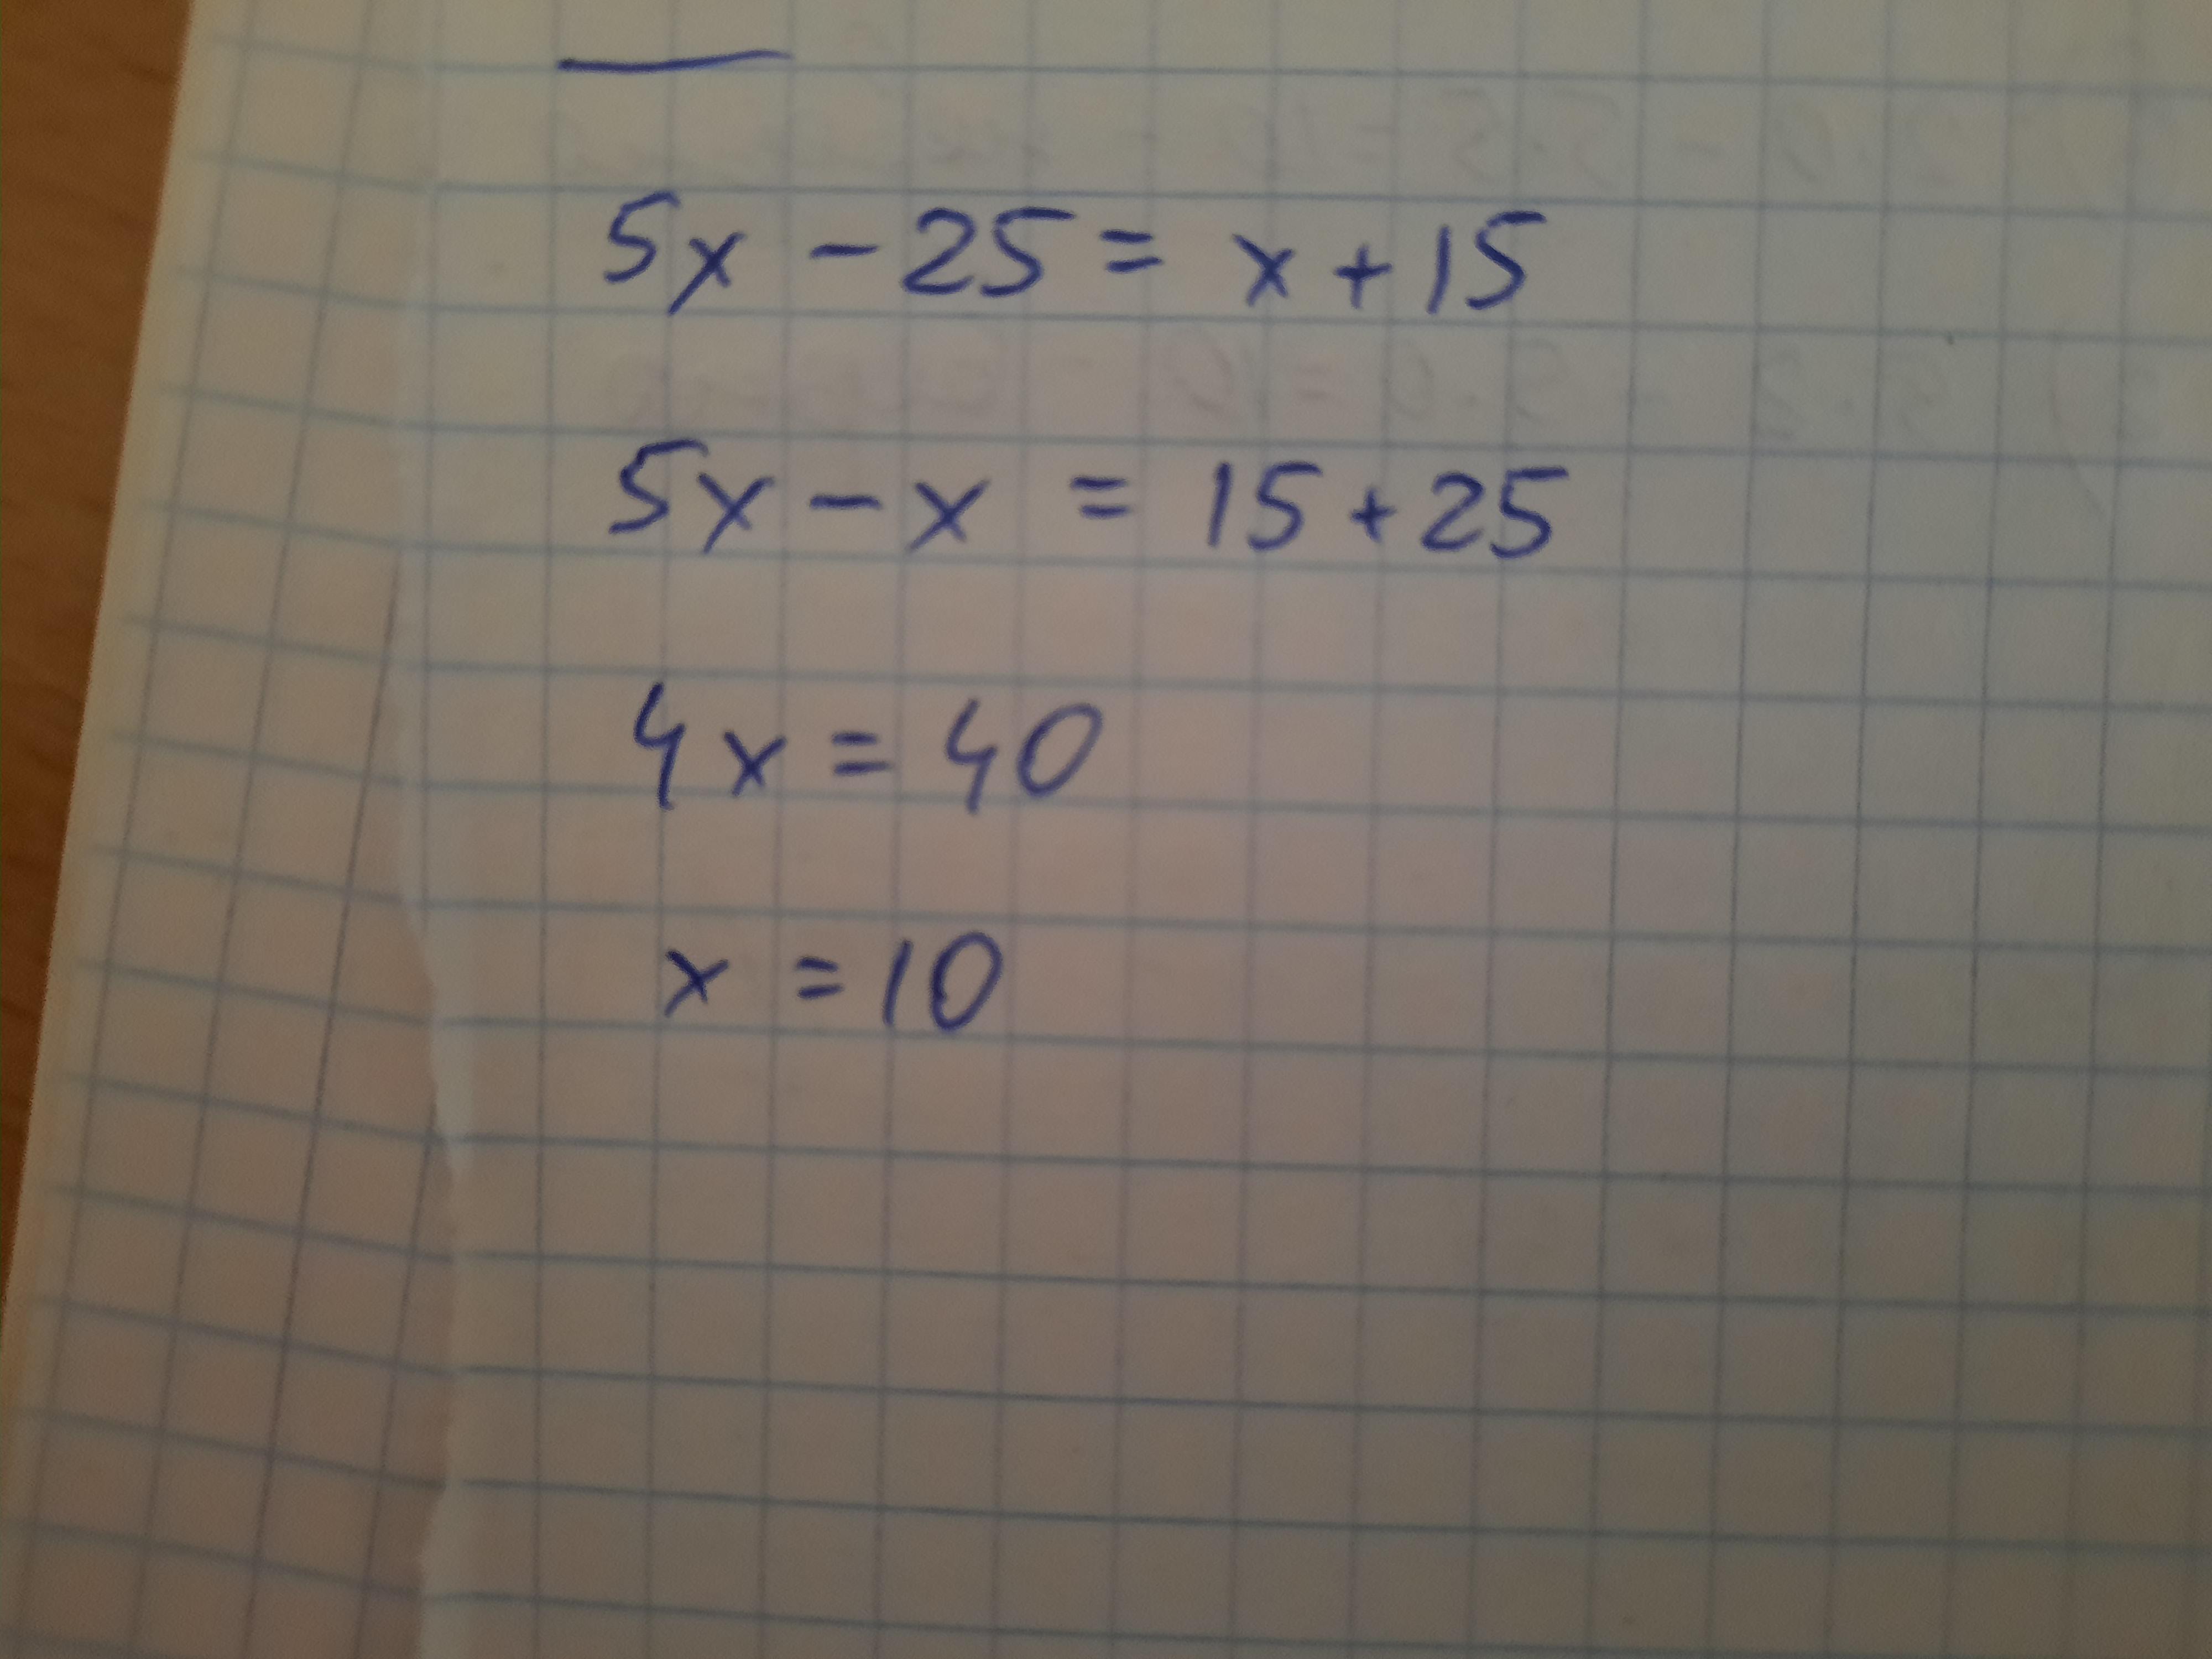 5x - 25 = x + 15
5x - x = 15 + 25
4x = 40
x = 10